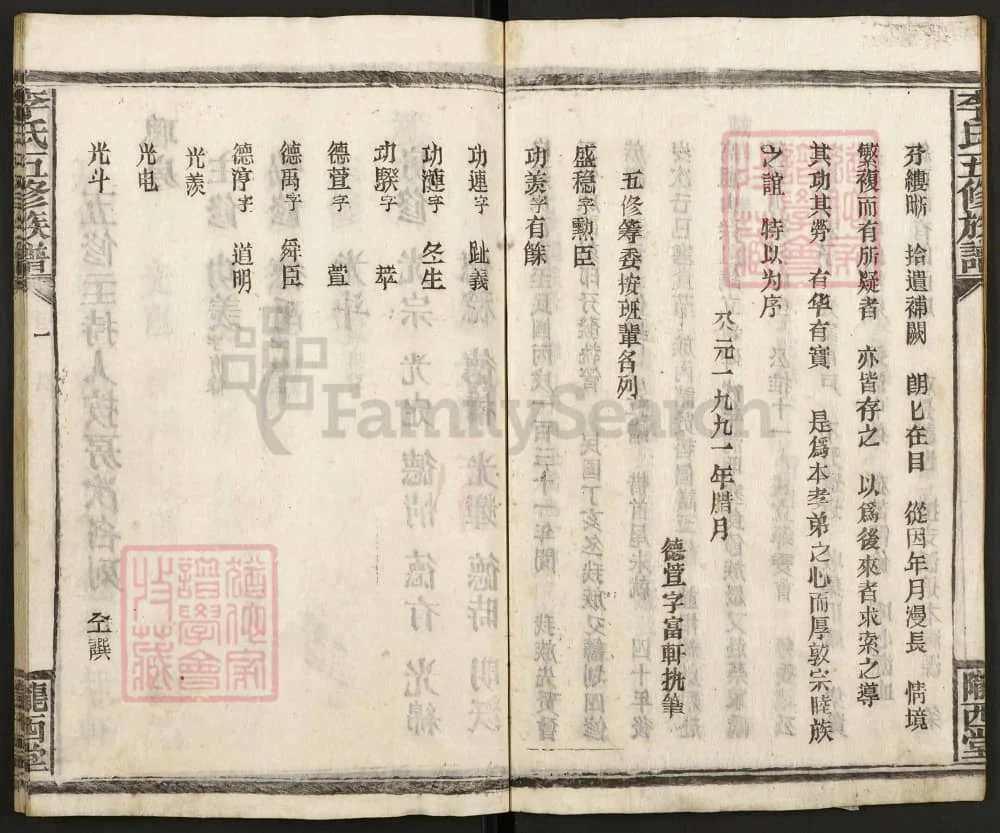 李氏五修族譜
隴西堂
芬縷晰 拾遺補闕 朗匕在目 從因年月漫長 情境
繁複而有所疑者 亦皆存之 以爲後來者求索之導
其功其勞 有华有實 是爲本孝弟之心而厚敦宗睦族
之誼 特以为序
公元一九九一年腊月
德萱字富軒执筆
五修筹委按班輩名列
盛穏字勲臣
功羡字有餘
功連字 趾義
功漣字 冬生
功騤字 萃
德萱字 萱
德禹字 舜臣
德淳字 道明
光羡
光电
光斗 仝譔
李氏五修族譜
一
隴西堂
譜學會
收藏
FamilySearch